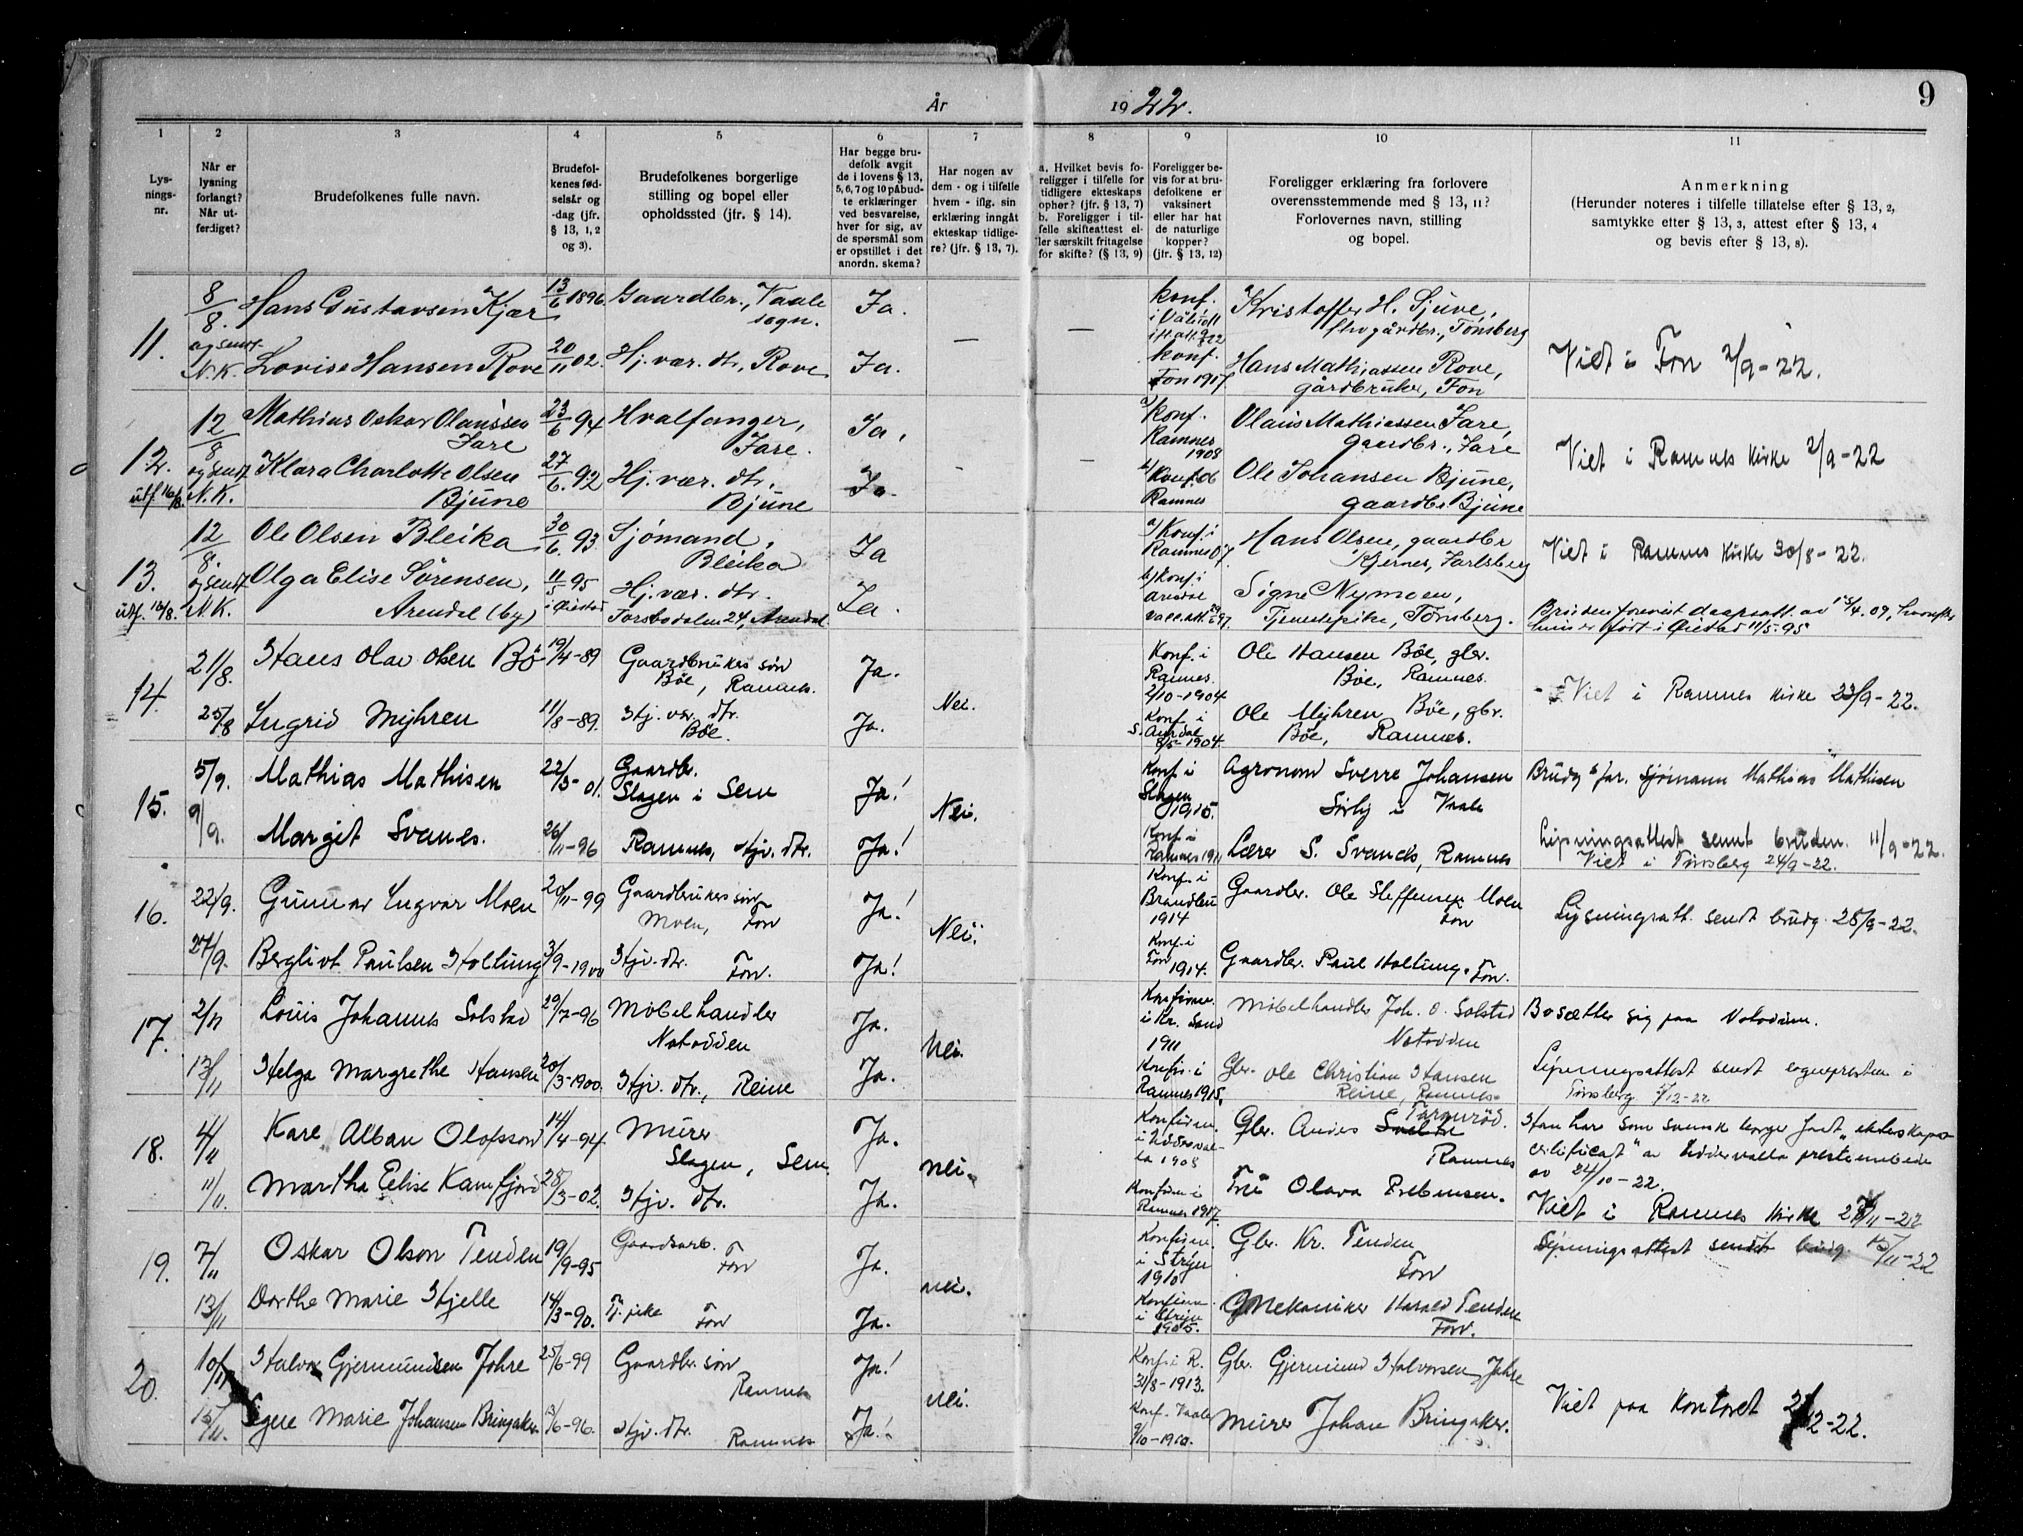 År 1922.
9
1 2 3 4 5 6 7 8 9 10 11
Lys-
nings-
nr.
Når er
lysning
forlangt?
Når ut-
ferdiget?
Brudefolkenes fulle navn.
Brudefol-
kenes fød-
selsår og
-dag (jfr.
§ 13, 1, 2
og 3).
Brudefolkenes borgerlige
stilling og bopel eller
opholdssted (jfr. § 14).
Har begge bru-
defolk avgit
de i lovens § 13,
5, 6, 7 og 10 påbud-
te erklæringer
ved besvarelse,
hver for sig, av
de spørsmål som
er opstillet i det
anordn. skema?
Har nogen av
dem - og i tilfelle
hvem - iflg. sin
erklæring inngått
ekteskap tidlige-
re? (jfr. § 13, 7).
a. Hvilket bevis fo-
religger i tilfelle for
tidligere ekteskaps
ophør? (jfr. § 13, 7)
b. Foreligger i til-
felle skifteattest el-
ler særskilt fritagelse
for skifte? (§ 13, 9)
Foreligger be-
vis for at bru-
defolkene er
vaksinert
eller har hat
de naturlige
kopper?
(jfr. § 13, 12)
Foreligger erklæring fra forlovere
overensstemmende med § 13, 11?
Forlovernes navn, stilling
og bopel.
Anmerkning
(Herunder noteres i tilfelle tillatelse efter § 13, 2,
samtykke efter § 13, 3, attest efter § 13, 4
og bevis efter § 13, 8).
11.
8/8. Hans Gustavsen Kjær 13/6 1896 Gaardbr., Vaale
sogn.
Ja.
konf.
Kristoffer H. Sjuve,
gårdbr., Tønsberg
og sendt
N.K. Lovise Hansen Rove 20/11 02. Hj. vær. dtr., Rove. Ja.
konf.
Fon 1917
Hans Mathiassen Rove,
gårdbruker, Fon
Viet i Fon 2/9-22.
12.
utf. 16/8.
12/8 Mathias Oskar Olaussen
Fare
23/6 94 Hvalfanger,
Fare.
Ja.
konf.
Ramnes
1908
Olaus Mathiassen Fare,
gaardbr., Fare
og sendt
N.K. Klara Charlotte Olsen
Bjune
27/6. 92 Hj. vær. dtr.
Bjune
Ja.
Konf. 06
Ramnes
Ole Johansen Bjune,
gaardbr. Bjune
Viet i Ramnes kirke 2/9-22
13.
utf. 16/8.
12/8. Ole Olsen Bleika 30/6. 93 Sjømand,
Bleika
Ja
a) Konf. i
Ramnes 07.
Hans Olsen, gaardbr
Kjernes, Jarlsberg
Viet i Ramnes kirke 30/8-22.
og sendt
N.K. Olga Elise Sørensen,
Arendal (by)
11/5 95
i Øiestad
Hj. vær. dtr.
Torsbodalen 24, Arendal
Ja.
b) Konf. i
Signe Nymoen,
Tjenestepike, Tønsberg.
hun er født i Øiestad 11/5-95
14.
21/8. Hans Olav Olsen Bö 19/4-89 Gaardbrukers søn
Böe, Ramnes.
Ja.
Konf. i
Ramnes.
2/10-1904
Ole Hansen Böe, gbr.
Böe, Ramnes.
25/8 Ingrid Myhren 11/8-89. Hj. vær. dtr.
Böe.
Ja.
Nei.
Konf. i
S. Aurdal
1904.
Ole Myhren Böe, gbr.
Böe, Ramnes.
Viet i Ramnes kirke 23/9-22.
15.
5/9. Mathias Mathisen 22/5-01. Gaardbr.
Slagen i Sem
Ja!
Konf. i
Slagen
1915.
Agronom Sverre Johansen
Sörby i Vaale
Brudg.s far. Sjømann Mathias Mathisen
9/9. Margit Svanes. 26/11-96 Ramnes, Hjv. dtr. Ja!
Nei.
Konf. i
Ramnes 1911
Lærer S. Svanes, Ramnes
Lysningsattest sendt bruden. 11/9-22.
Viet i Tønsberg 24/9-22.
16.
22/9. Gunnar Ingvar Moen 20/11-99 Gaardbrukers søn
Moen, Fon
Ja!
Konf. i
Brandbu
1914
Gaardbr. Ole Steffensen Moen
Fon
Lysningsatt. sendt brudg. 28/9-22.
27/9. Bergliot Paulsen Holtung 3/9-1900 Hjv. dtr.
Fon.
Ja!
Nei.
Konf. i
Fon
1914.
Gaardbr. Paul Holtung. Fon.
17.
2/11 Louis Johannes Solstad 29/7-96 Möbelhandler
Notodden
Ja.
Konfirm.
i Kr. Sand
1911
Möbelhandler Joh. O. Solstad
Notodden
Bosætter sig paa Notodden.
13/11 Helga Margrethe Hansen 20/3-1900. Hjv. dtr., Reine Ja.
nei.
Konfir. i
Ramnes 1915.
Gbr. Ole Christian Hansen
Reine, Ramnes.
Lysningsattest sendt sognepresten i
Tønsberg 12-22
18.
4/11 Karl Alban Olofsson 14/4-94. Murer
Slagen, Sem
Ja.
Konfirm.
i Uddeval-
la 1908
Gbr. Anders
Ramnes
Han har som svensk borger fått "ekteskaps-
certificat" av Uddevalla prestembede
av 24/10-22.
11/11. Martha Elise Kamfjord 28/3-02. Hjv. dtr. Ja.
nei.
Konfirm. i
Ramnes 1917.
Fru Olava Prebensen.
Viet i Ramnes kirke 11-22
19.
7/11 Oskar Olson Tenden 19/9-95 Gaardsarb.
Fon
Ja.
Konfirm.
i Stryn
1910
Gbr. Kr. Tenden
Fon
Lysningsattest sendt brudg. 15/11-22
13/11 Dorthe Marie Hjelle 14/3-90. Tj. pike Fon Ja.
nei.
Konfirm.
i Stryn
1905.
Mekaniker Harald Tenden
Fon.
20.
10/11 Halvor Gjermundsen Johre 25/6-99 Gaardbr. søn
Ramnes
Ja!
Konf. i R.
31/8-1913.
Gbr. Gjermund Halvorsen Johre
15/11. Signe Marie Johansen Bringaker 13/6-96. Hjv. dtr.
Ramnes
Ja!
nei.
Konf. Vaale
9/10-1910.
Murer Johan Bringaker.
Viet paa kontoret 2/12-22.